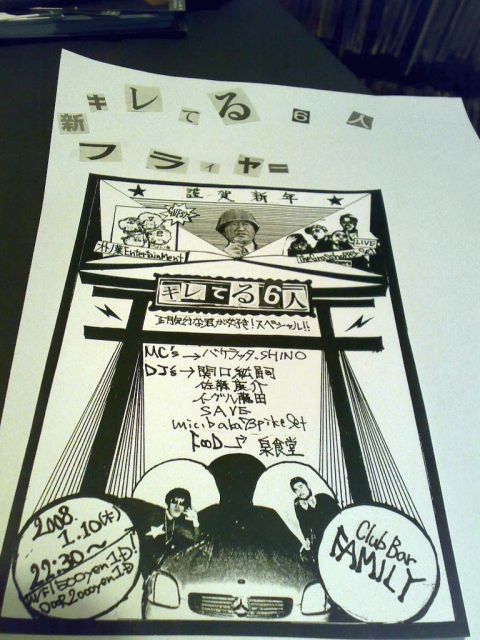 キレてる6人
新
フライヤー
謹賀新年
VIDEO
LIVE
朴ノ葉Entertainment
キレてる6人
正月気分な君が好き!スペシャル!!
MC's→バケラッタ.SHINO
DJ's→関口紘嗣
佐藤英介
イーグル藤田
SAVE
micibaba&Spike Set
FOOD→梟食堂
2008
1.10(木)
22:30~
W/F1500yen1.D!
DOOR2000yen1.D
Club Bar
FAMILY